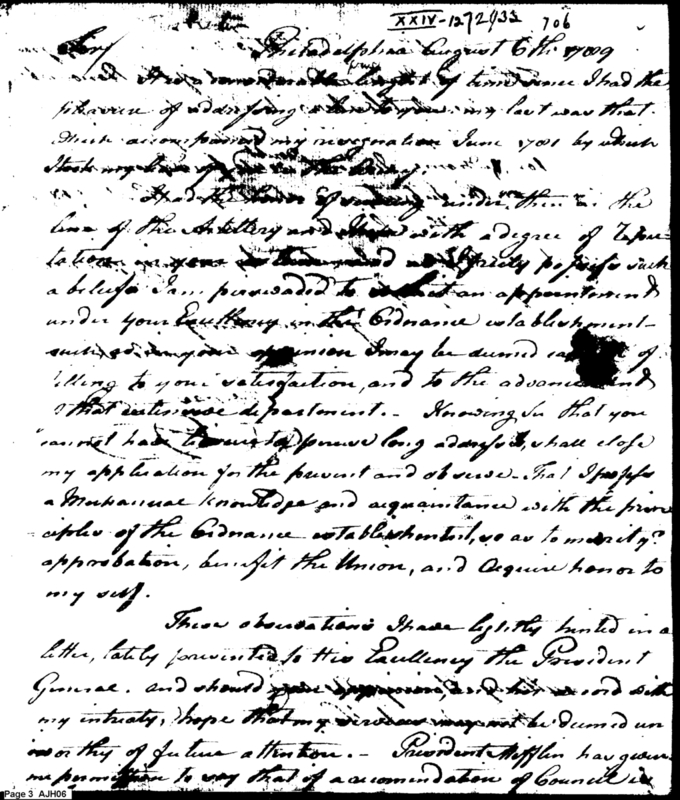 XXIV-127/235 706
Sir, Philadelphia August 6th. 1789
It is a considerable length of time since I had the
pleasure of addressing a line to you, my last was that
which accompanied my resignation June 1781 by which
I took my leave of
I had the honor of serving under you then in the
line of the Artillery and with a degree of Repu-
tation in your possess such
a beleif I am perswaded to an appointment
under your Excellency in the Ordnance establishment
such as in your opinion I may be deemed of
filling to your satisfaction, and to the advancement
of that extensive department. - Knowing Sir that you
cannot have to peruse long address's, shall close
my application for the present and observe - That I possess
a Mechanical knowledge and acquaintance with the prin-
ciples of the Ordnance establishment, so as to merit yr.
approbation, benefit the Union, and acquire honor to
my self.
These observations I have lightly hinted in a
letter, lately presented to His Excellency the President
General. and should your opinion, and his accord with
my intreaty, hope that my services may not be deemed un
worthy of future attention. - President Mifflin has given
me permission to say that if a recomendation of Council is
Page 3 AJH06